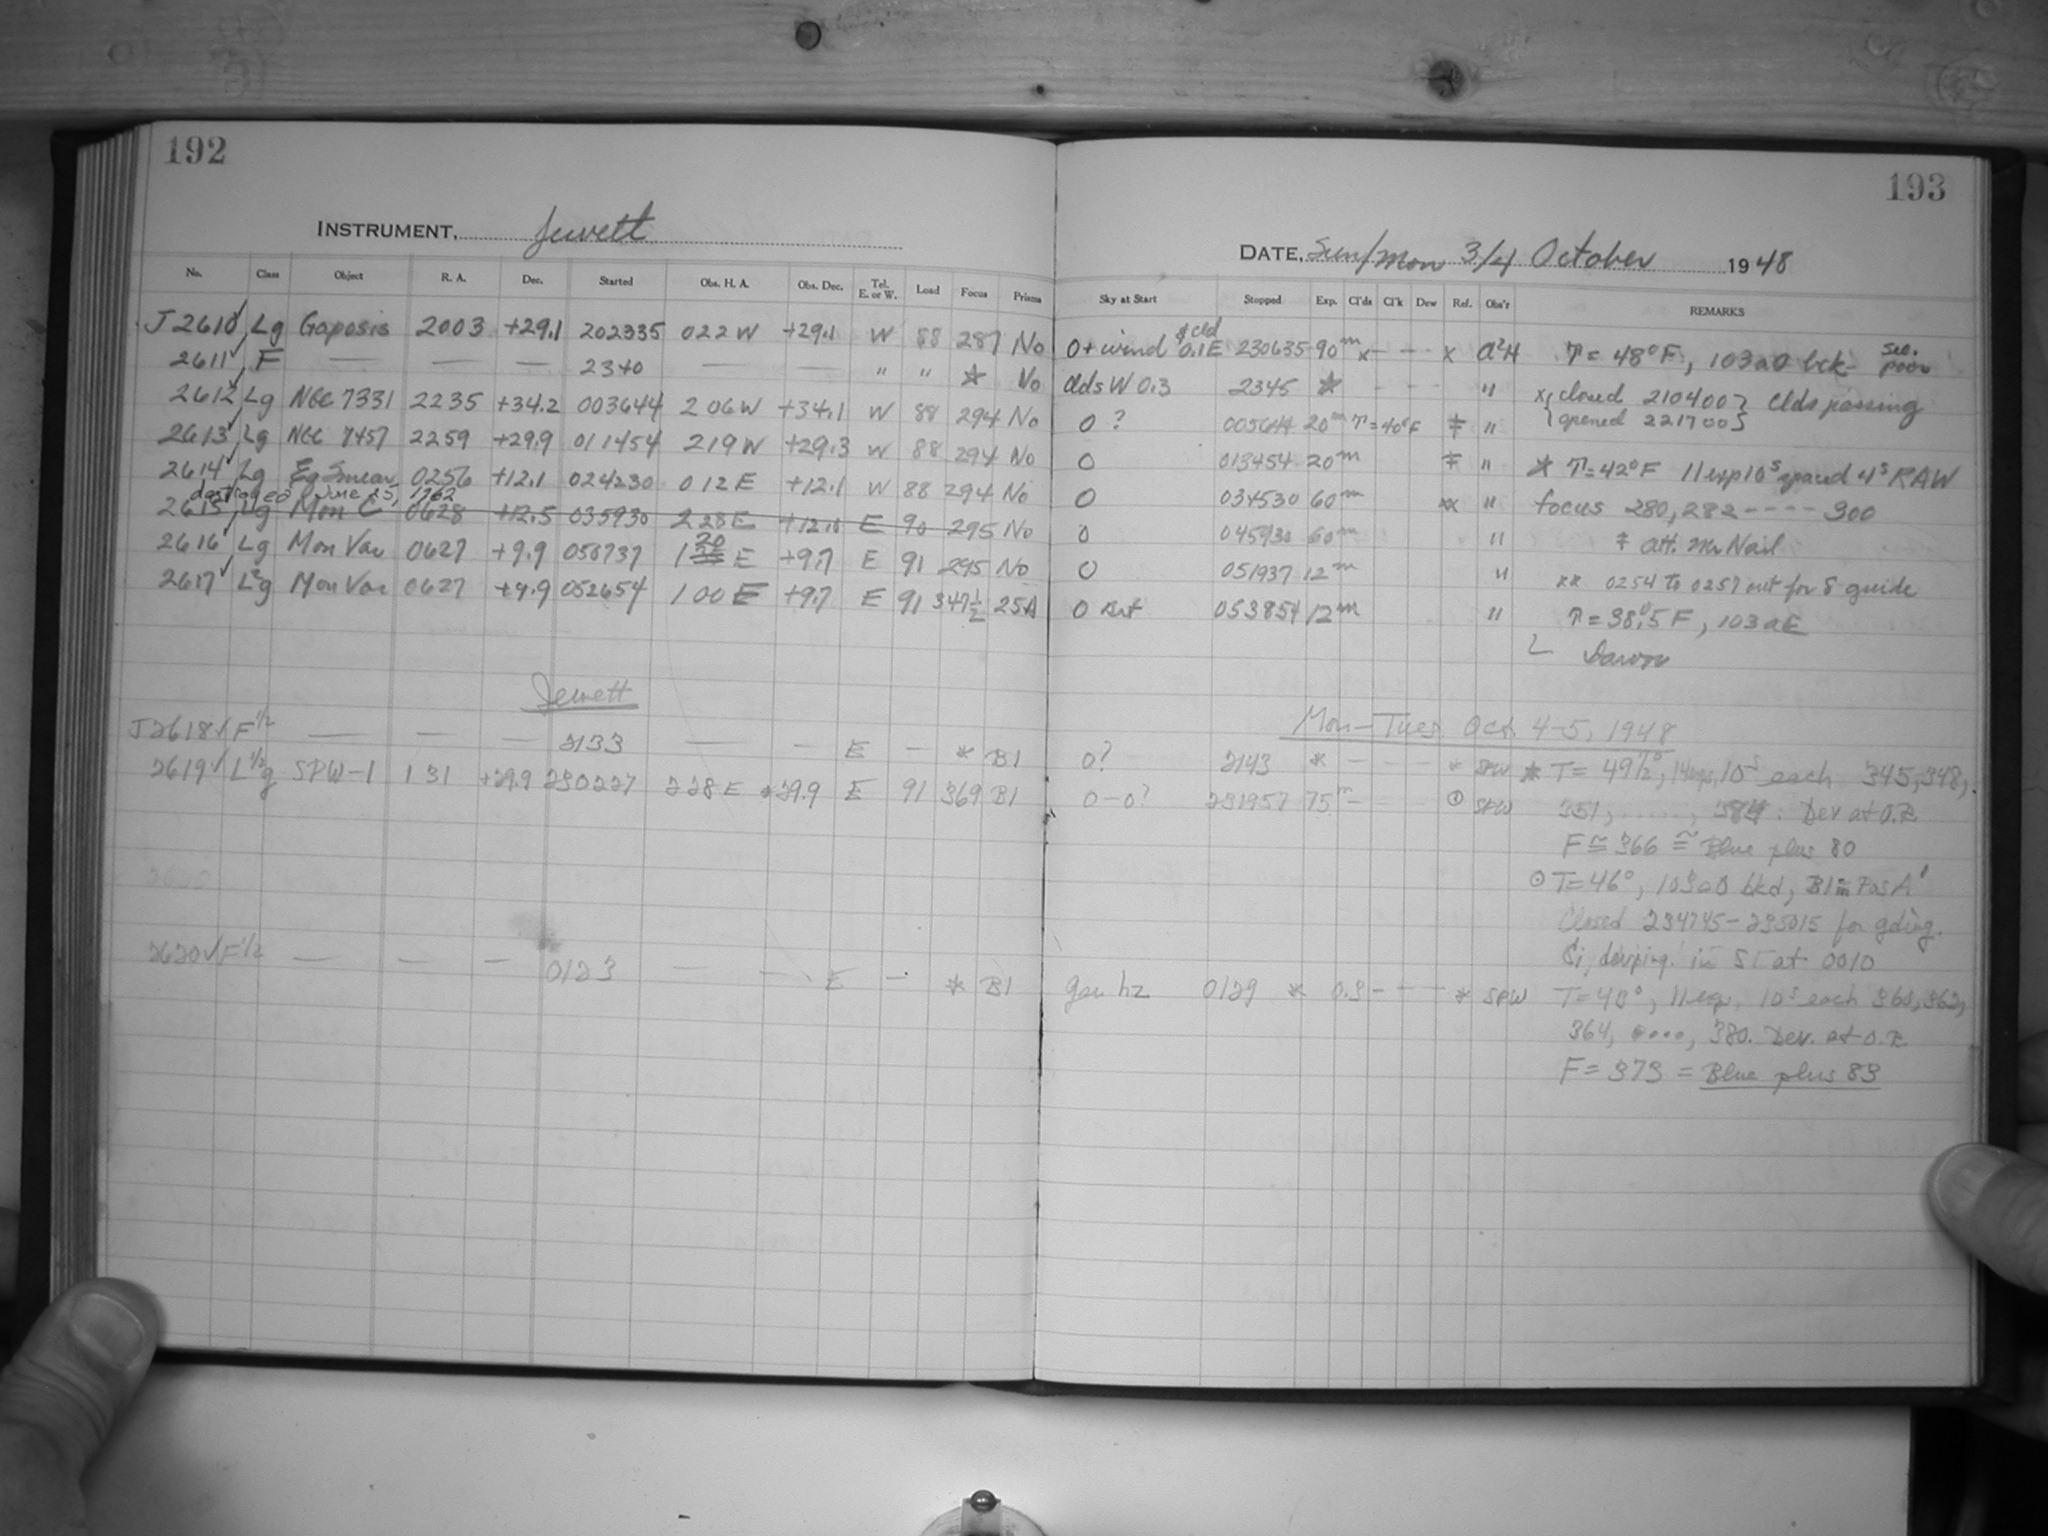 192
INSTRUMENT, Jewett
No. Class Object R. A. Dec. Started Obs. H. A. Obs. Dec. Tel. E. or W. Load Focus Prisms
J2610 ✓ Lg Gaposis 2003 +29.1 202335 022 W +29.1 W 88 287 No
2611 ✓ F — — — 2340 — — " " * No
2612 ✓ Lg NGC 7331 2235 +34.2 003644 2 06 W +34.1 W 88 294 No
2613 ✓ Lg NGC 7457 2259 +29.9 011454 219 W +29.3 W 88 294 No
2614 ✓ Lg Eg Smear 0256 +12.1 024230 012 E +12.1 W 88 294 No
destroyed June 25, 1962
2615 Lg Mon C 0628 +12.5 035930 228 E +12.0 E 90 295 No
2616 ✓ Lg Mon Var 0627 +9.9 050737 1 20 E +9.7 E 91 295 No
2617 ✓ L²g Mon Var 0627 +9.9 052654 1 00 E +9.7 E 91 347½ 25A
Jewett
J2618 ✓ F½ — — — 2133 — — E — * B1
2619 ✓ L½g SPW-1 1 31 +29.9 230227 228 E +29.9 E 91 369 B1
2620 ✓ F½ — — — 0123 — — E — * B1
193
DATE, Sun/Mon 3/4 October 1948
Sky at Start Stopped Exp. Cl'ds Cl'k Dew Ref. Obs'r REMARKS
0+ wind & cld 0.1E 230635 90m x - - - x a²H T = 48°F, 103aO bck- See. poor
clds W 0.3 2345 * - - - " x{closed 210400} clds passing
0 ? 005644 20m T=40°F ‡ " {opened 221700}
0 013454 20m ‡ " * T=42°F 11 exp 10s spaced 4s RAW
0 034530 60m xx " focus 280, 282 - - - - 300
0 045930 60m " ‡ att. Mr Nail
0 051937 12m " xx 0254 to 0257 out for δ guide
0 053854 12m " T = 38.°5 F, 103aE
Mon-Tues. Oct. 4-5, 1948
0? 2143 * - - - - * SPW * T = 49½°, 14 exps, 10s each 345, 348,
0-0? 231957 75m - - - ⊙ SPW 351, ....., 384. Dev at O.R.
F ≅ 366 ≅ Blue plus 80
⊙ T=46°, 103aO bkd, B1 in Pos A'
Closed 234745-235015 for gding.
in ST at 0010
gen hz 0129 * 0.3 - - - * SPW T=43°, 11 exp. 10s each 360, 362,
364, ...., 380. Dev. at O.R.
F = 373 = Blue plus 83